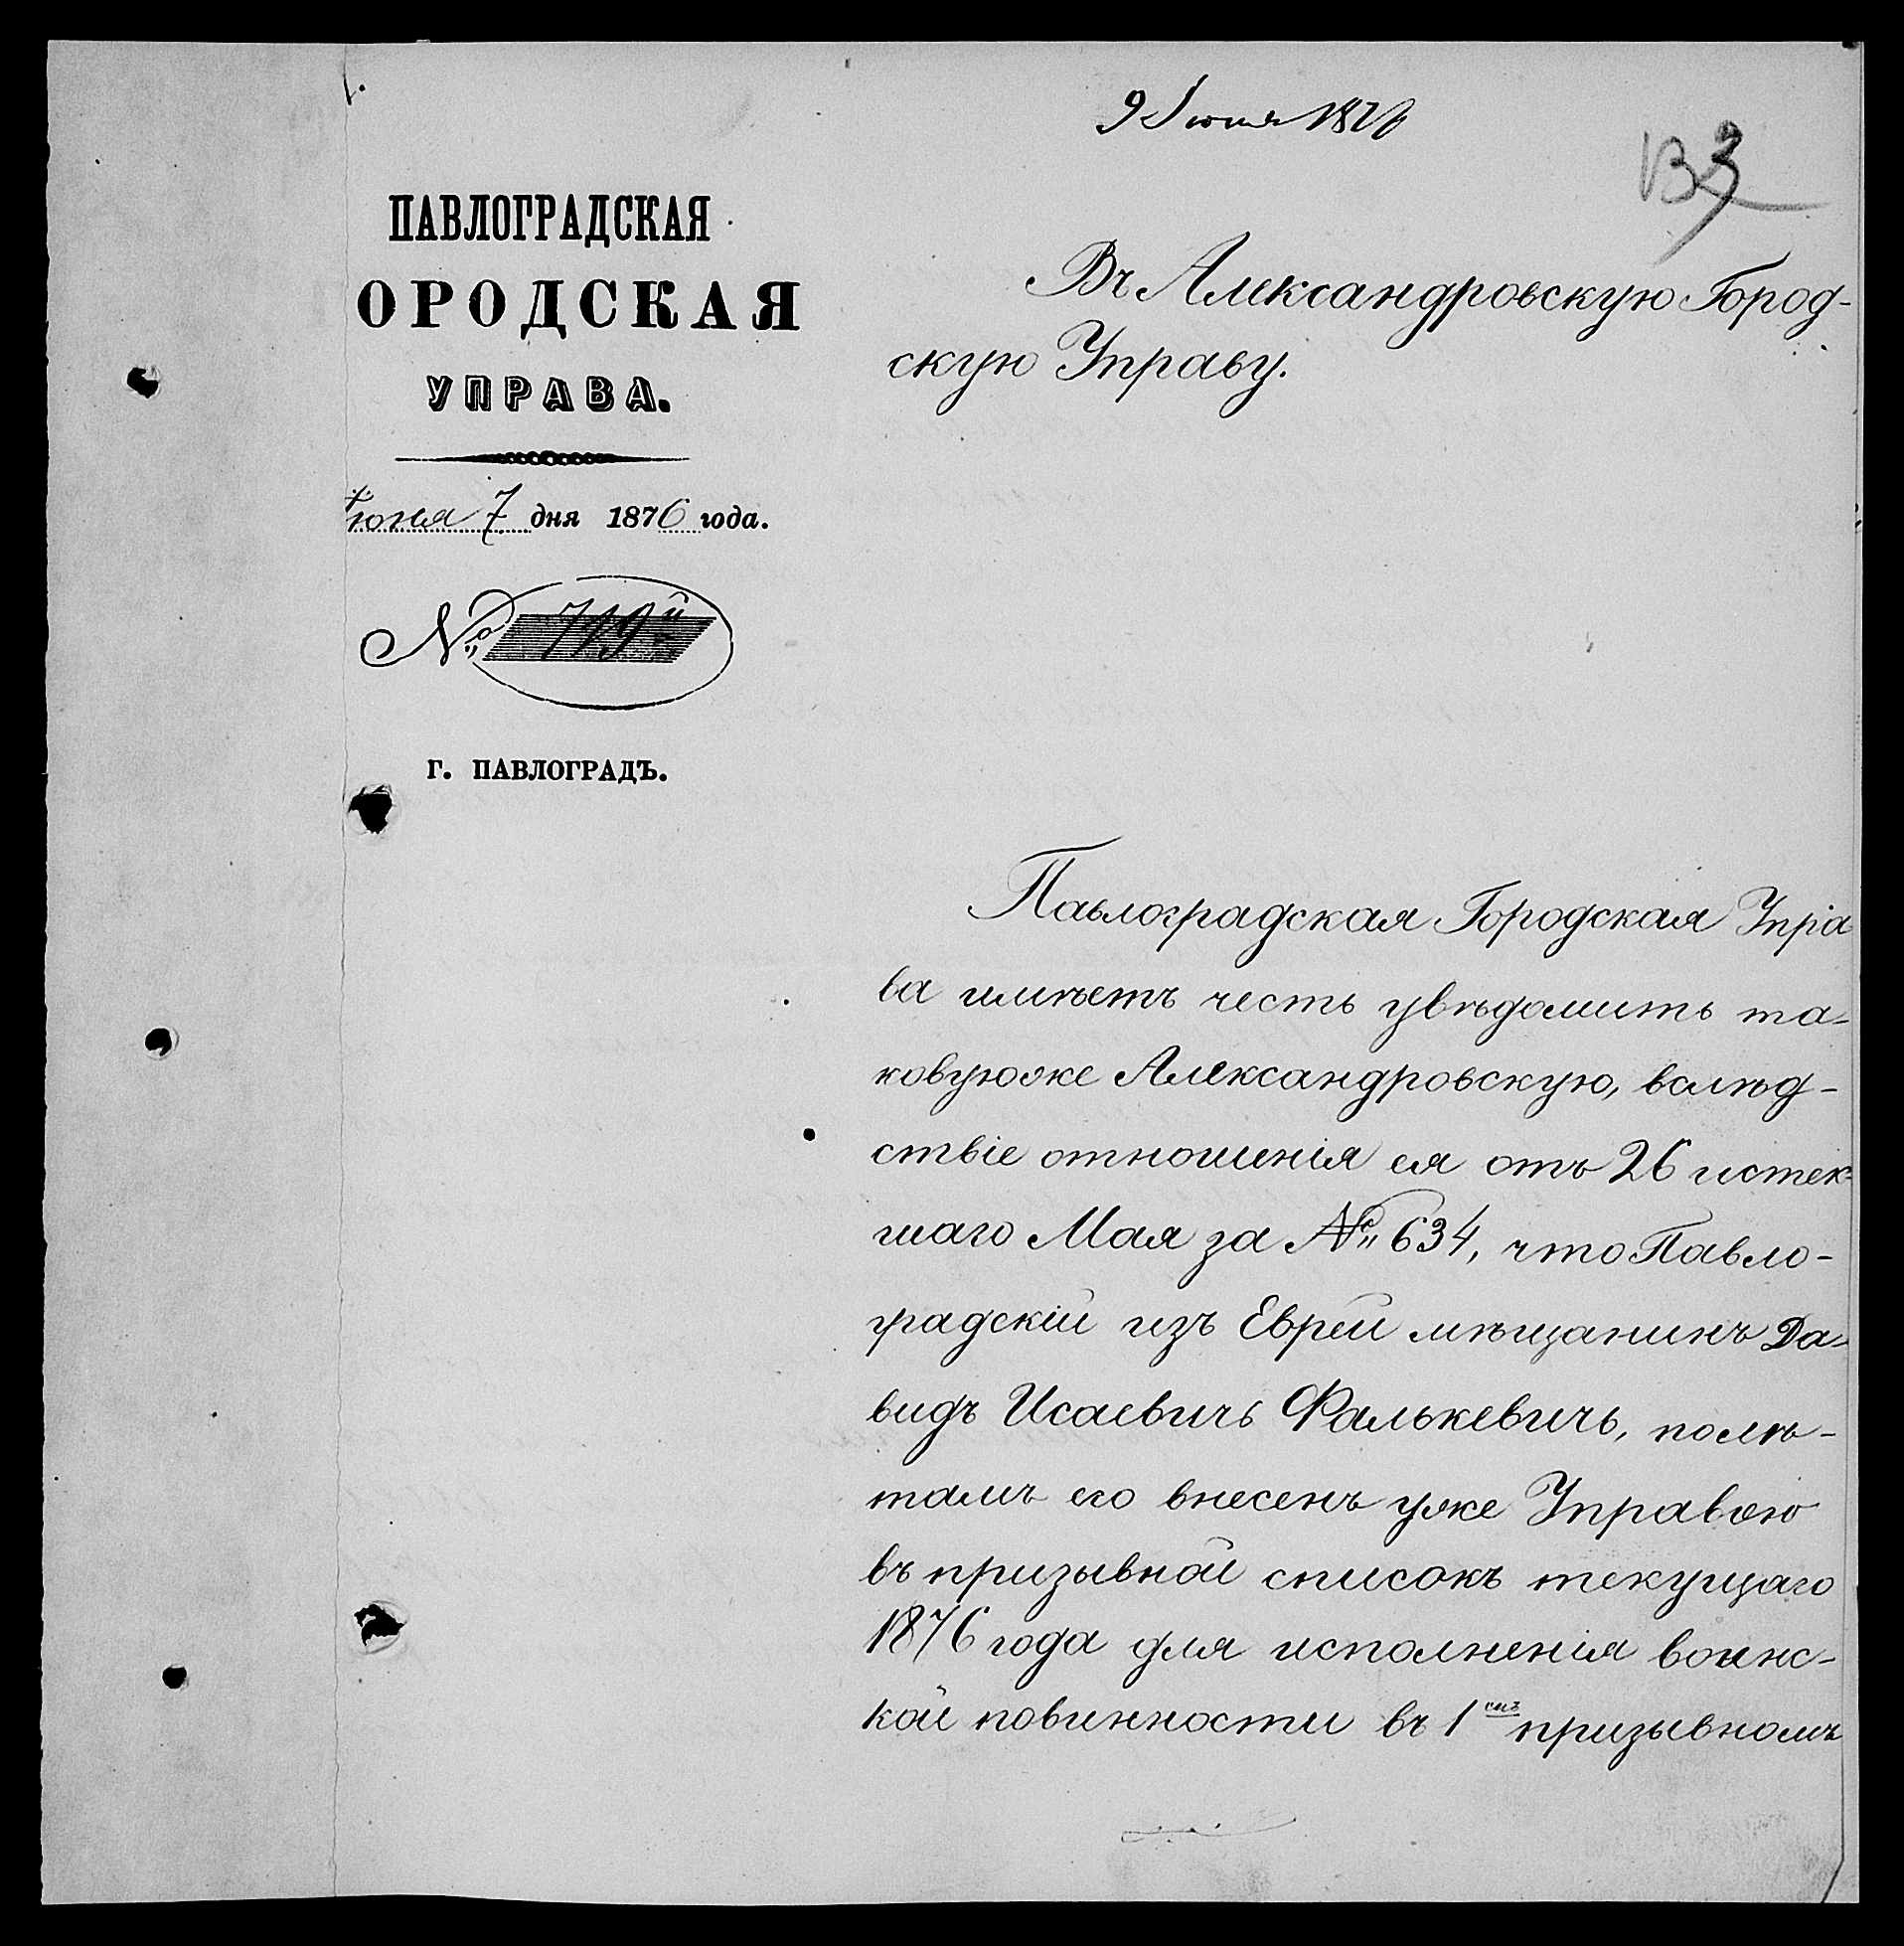 9 Июня 1876
133
ПАВЛОГРАДСКАЯ
ОРОДСКАЯ
УПРАВА.
Іюня 7 дня 1876 года.
№ 719й
Г. ПАВЛОГРАДЪ.
Въ Александровскую Город-
скую Управу.
Павлоградская Городская Упра
ва имѣетъ честь увѣдомить та-
ковуюже Александровскую, вслѣд-
ствіе отношенія ея отъ 26 истек-
шаго Мая за № 634, что Павло-
градскій изъ Еврей мѣщанинъ Да-
видъ Исаевичь Фалькевичь, полѣ-
тамъ его внесенъ уже Управою
въ призывной списокъ текущаго
1876 года для исполненія воинс-
кой повинности въ 1смъ призывномъ